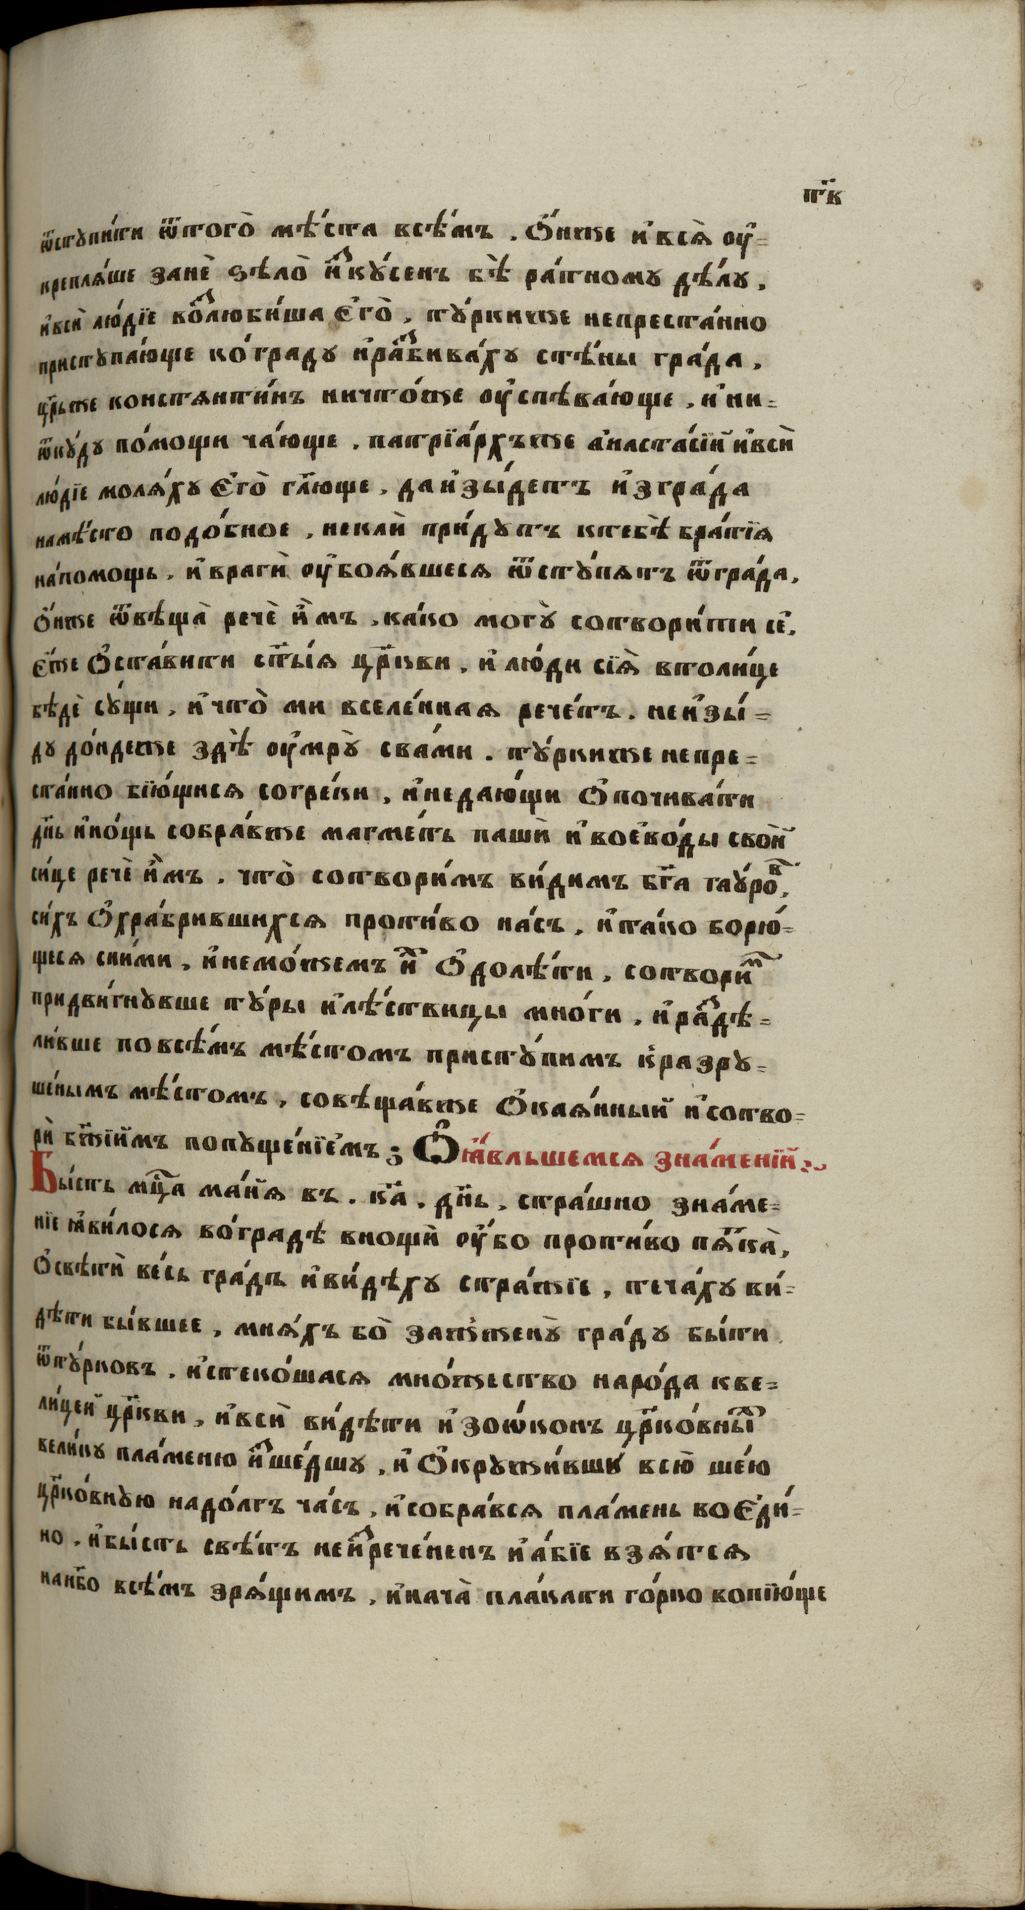 п҃в
ѿстꙋпи́ти ѿтого̀ мѣ́ста всѣ́мъ . Ѻ҆́нже и҆всѧ̀ ᲂу҆=
креплѧ́ше занѐ ѕѣло̀ и҆скꙋ́сенъ бѣ̀ ра́тномꙋ дѣ́лꙋ ,
и҆всѝ лю́дїе возлюби́ша Є҆го̀ , тꙋ́ркиже непреста́нно
пристꙋпа́юще ко́градꙋ и҆разбива́хꙋ стѣ́ны гра́да ,
цр҃ьже констѧнти́нъ ничто́же ᲂу҆спѣва́юще , и҆ни=
ѿкꙋ́дꙋ по́мощи ча́юще . патрїа́рхъже а҆наста́сїй и҆всѝ
лю́дїе молѧ́хꙋ Є҆го̀ гл҃юще , даи҆зы́детъ и҆згра́да
намѣ́сто подо́бное , неклѝ при́дꙋтъ ктебѣ̀ бра́тїѧ
на́помощь , и҆врагѝ ᲂу҆боѧ́вшесѧ ѿстꙋ́пѧтъ ѿгра́да ,
Ѻ҆́нже ѿвѣща̀ речѐ и҆̀мъ , ка́ко могꙋ̀ сотвори́ти се̑ ,
є҆́же Ѻ҆ста́вити ст҃ы́ѧ цр҃кви , и҆ лю́ди сїѧ̀ втоли́це
бѣдѐ сꙋ́щи , и҆что̀ ми вселе́ннаѧ рече́тъ . неи҆зы́=
дꙋ до́ндеже здѣ̀ ᲂу҆мрꙋ̀ сва́ми . тꙋ́ркиже непре=
ста́нно бїю́щисѧ согре́ки , и҆недаю́щи Ѻ҆почива́ти
дн҃ь и҆но́щь собра́вже магме́тъ пашѝ и҆воево́ды своѝ
си́це речѐ и҆̀мъ , что̀ сотвори́мъ ви́димъ бг҃а гаꙋ́ров ,
си́хъ Ѻ҆хра́брившихсѧ проти́во на́съ , и҆та́ко борю́=
щесѧ сни́ми , и҆немо́жемъ и҆х Ѻ҆долѣ́ти , сотвори́м
придви́гнꙋвше тꙋ́ры и҆лѣ́ствицы мно́ги , и҆раздѣ=
ли́вше повсѣ́мъ мѣ́стомъ пристꙋ́пимъ к̾разрꙋ=
ше́нымъ мѣ́стомъ , совѣща́вже Ѻ҆каѧ́нный и҆сотво=
рѝ бж҃їимъ попꙋще́нїемъ ; Ѻ҆ꙗ҆́вльшемсѧ зна́менїи ,
Бы́сть мц҃а ма́їѧ въ . к҃а . дн҃ь , стра́шно зна́ме=
нїе ꙗ҆ви́лосѧ во́градѣ внощѝ ᲂу҆́бо проти́во пѧтка̀ ,
Ѻ҆свѣтѝ ве́сь гра́дъ и҆ви́дѣхꙋ стра́жїе , теча́хꙋ ви́=
дѣти бы́вшее , мнѧ́хъ бо̀ зажже́нꙋ гра́дꙋ бы́ти
ѿтꙋ́рковъ . и҆стеко́шасѧ мно́жество наро́да кве=
ли́цей цр҃кви , и҆всѝ ви́дѣти и҆зоѡ҆конъ цр҃ко́вных
вели́кꙋ пла́меню и҆зше́дшꙋ , и҆ Ѻ҆крꙋжи́вши всю̀ ше́ю
цр҃ко́внꙋю надо́лгъ ча́съ , и҆собра́всѧ пла́мень воЄ҆ди́=
но , и҆бы́сть свѣ́тъ неи҆зрече́ненъ и҆а́бїе взѧ́тсѧ
нан҃бо всѣ́мъ зрѧ́щимъ , и҆нача̀ пла́кати го́рко вопїю́ще